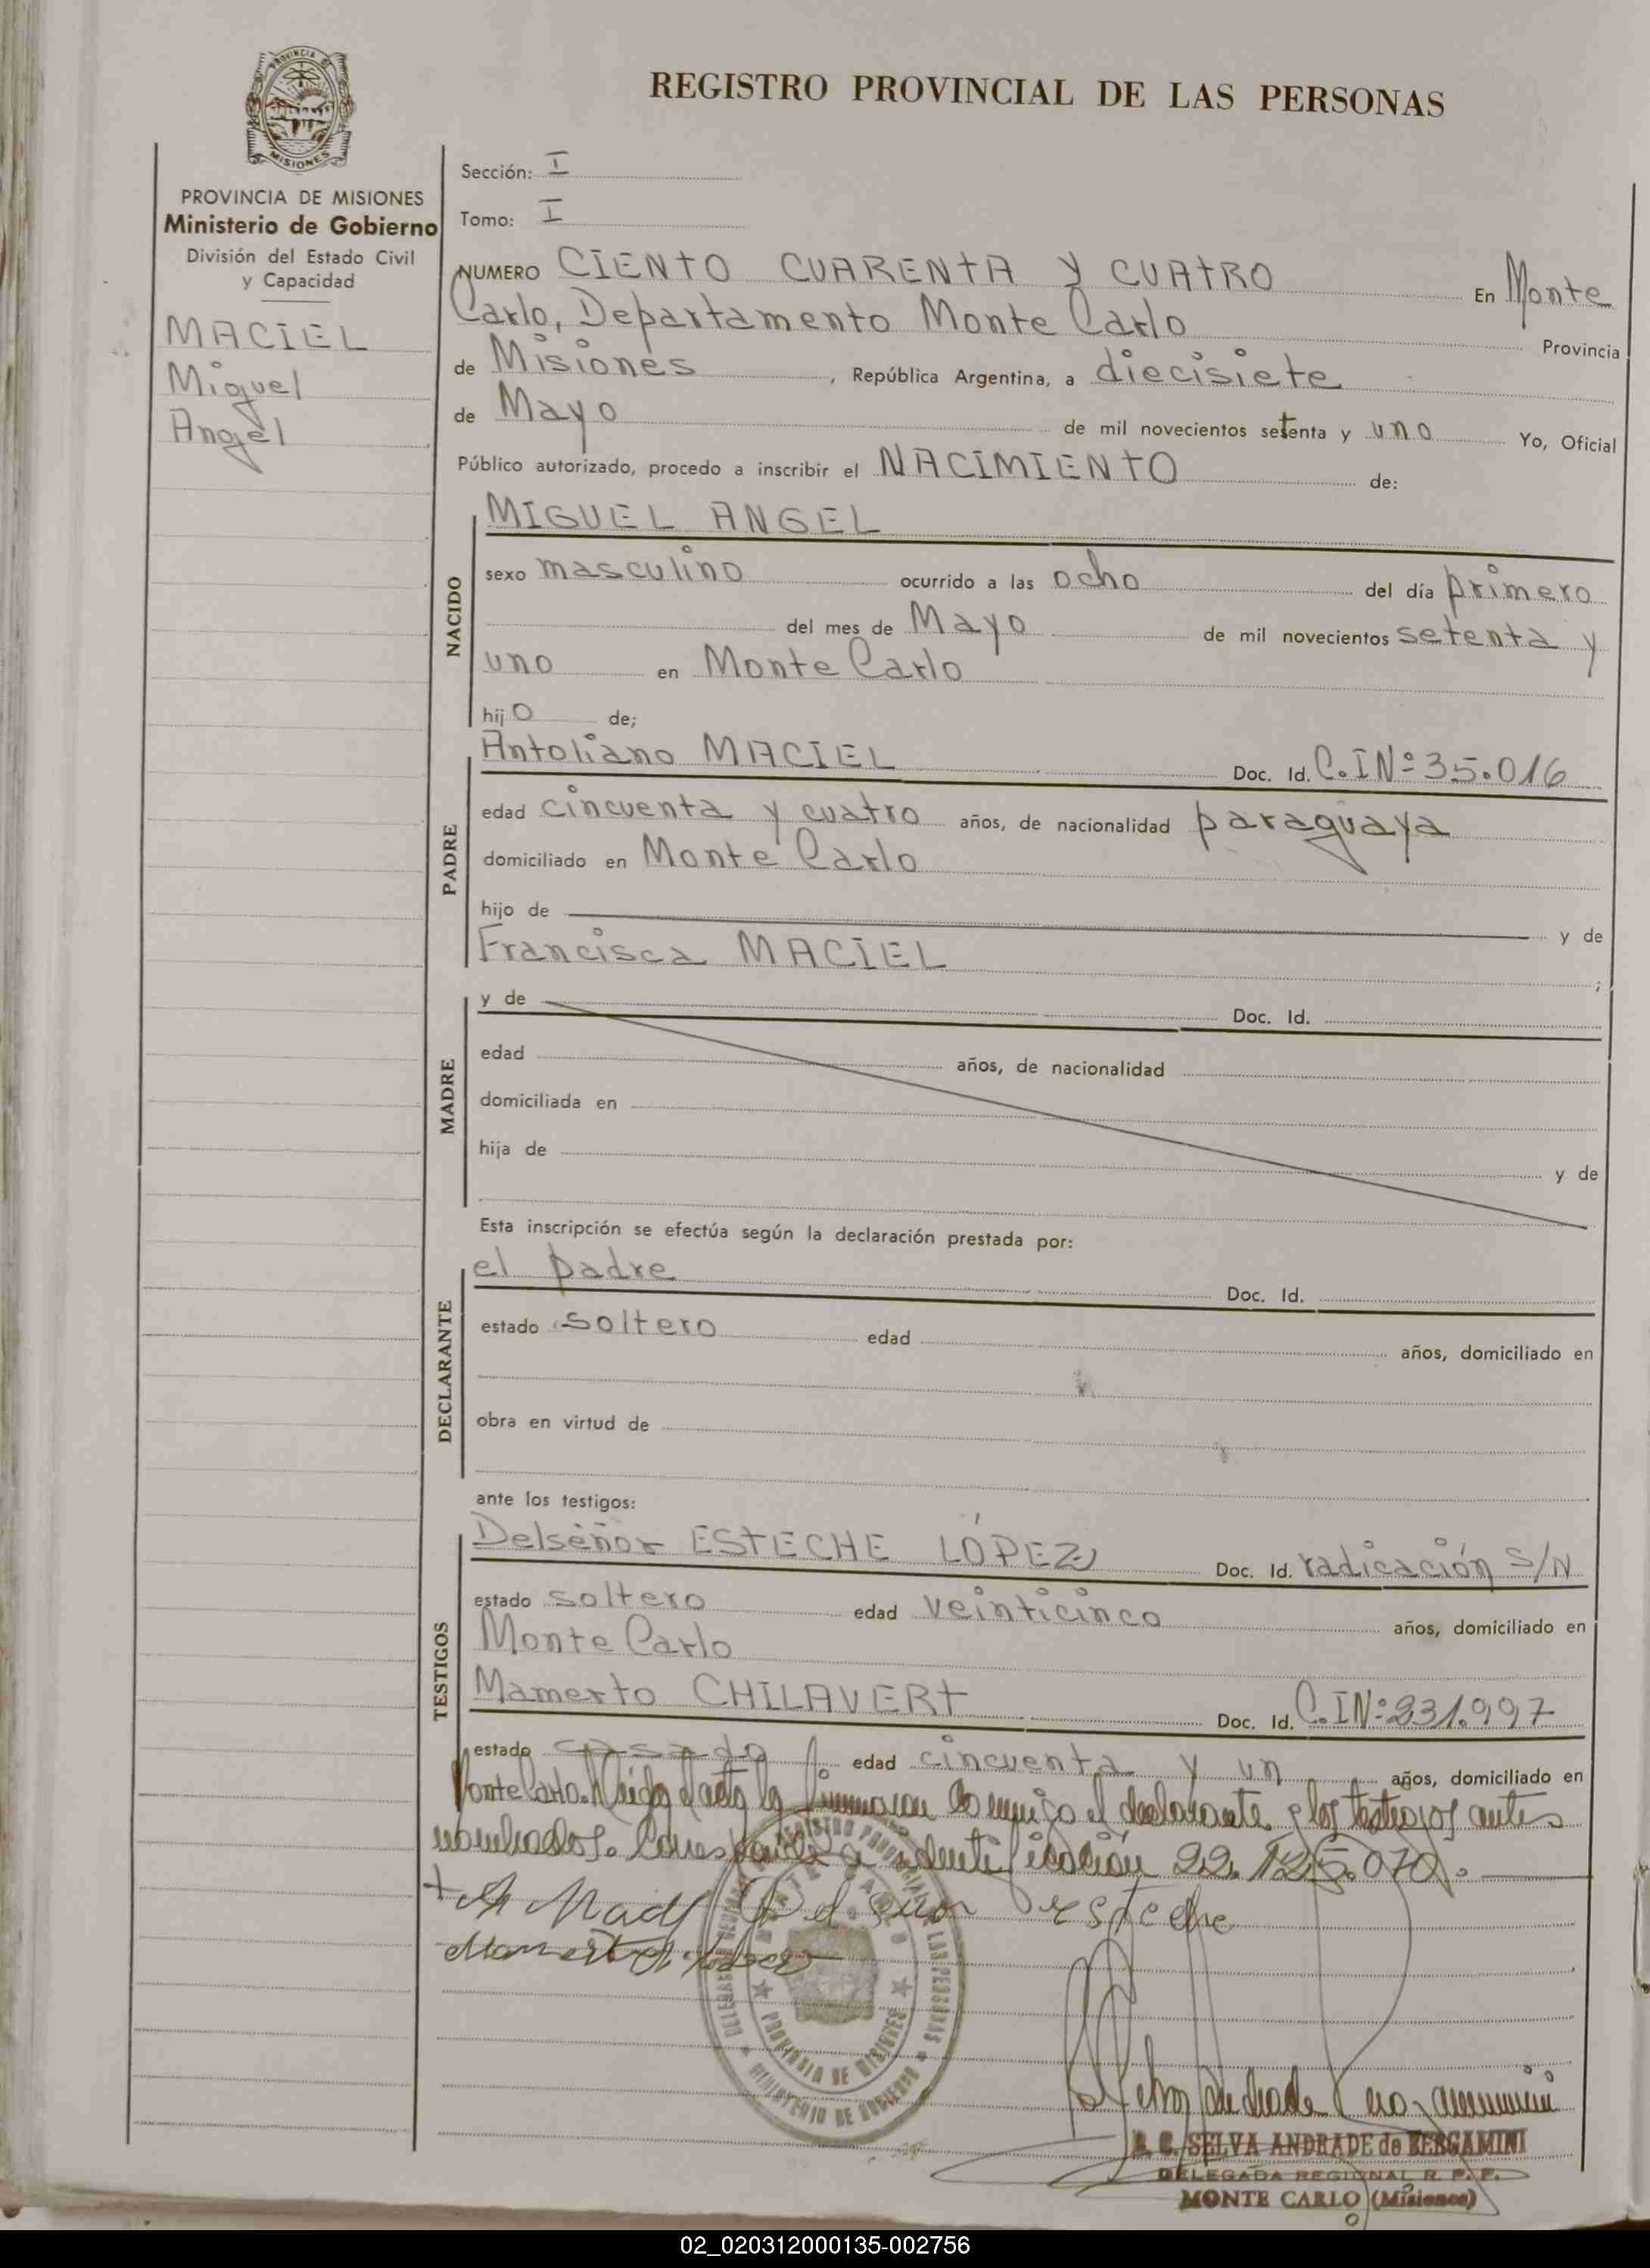 REGISTRO PROVINCIAL DE LAS PERSONAS
PROVINCIA DE MISIONES
Ministerio de Gobierno
División del Estado Civil
y Capacidad
MACIEL
Miguel
Angel
Sección: I
Tomo: I
NUMERO CIENTO CUARENTA Y CUATRO En Monte
Carlo, Departamento Monte Carlo Provincia
de Misiones, República Argentina, a diecisiete
de Mayo de mil novecientos setenta y uno Yo, Oficial
Público autorizado, procedo a inscribir el NACIMIENTO de:
NACIDO
MIGUEL ANGEL
sexo masculino ocurrido a las ocho del día primero
del mes de Mayo de mil novecientos setenta y
uno en Monte Carlo
hijo de;
PADRE
Antoliano MACIEL Doc. Id. C.I Nº 35.016
edad cincuenta y cuatro años, de nacionalidad paraguaya
domiciliado en Monte Carlo
hijo de y de
Francisca MACIEL ;
MADRE
y de Doc. Id.
edad años, de nacionalidad
domiciliada en
hija de y de
Esta inscripción se efectúa según la declaración prestada por:
DECLARANTE
el padre Doc. Id.
estado soltero edad años, domiciliado en
obra en virtud de
ante los testigos:
TESTIGOS
Delseñor ESTECHE LÓPEZ Doc. Id. radicación S/N
estado soltero edad veinticinco años, domiciliado en
Monte Carlo
Mamerto CHILAVERT Doc. Id. C.I Nº 331.997
estado casado edad cincuenta y un años, domiciliado en
Monte Carlo. Leída el acta la firmaron conmigo el declarante y los testigos antes
nombrados. Corresponde a identificación 22.125.070.
Delseñor esteche
DELEGADA REGIONAL REGISTRO PROVINCIAL DE LAS PERSONAS
MONTE CARLO
PROVINCIA DE MISIONES
MINISTERIO DE GOBIERNO
SELVA ANDRADE de BERGAMINI
DELEGADA REGIONAL R. P. P.
MONTE CARLO (Misiones)
02_020312000135-002756